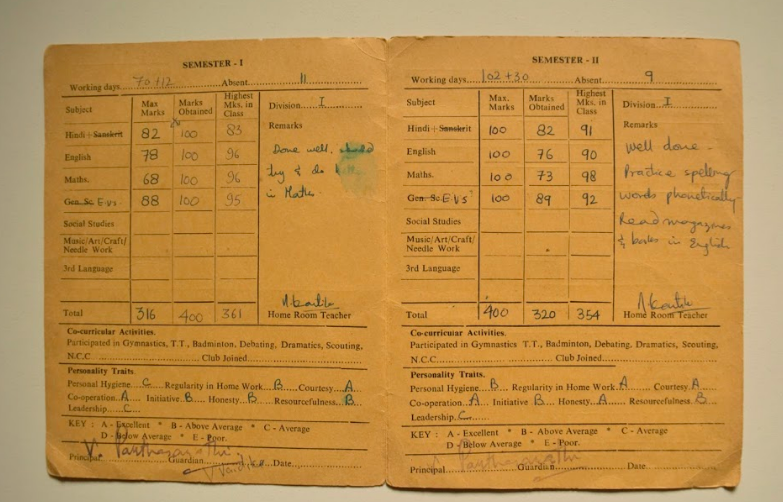 SEMESTER - I
Working days 70+12 Absent 11
Subject Max Marks Marks Obtained Highest Mks. in Class Division I
Hindi + Sanskrit 82 100 83 Remarks
English 78 100 96 Done well. should
Maths. 68 100 96 try & do
Gen. Sc. E.V.S 88 100 95 in Maths.
Social Studies
Music/Art/Craft/
Needle Work
3rd Language
Total 316 400 361 Home Room Teacher
Co-curricular Activities.
Participated in Gymnastics, T.T., Badminton, Debating, Dramatics, Scouting,
N.C.C. Club Joined
Personality Traits.
Personal Hygiene C Regularity in Home Work B Courtesy A
Co-operation A Initiative B Honesty B Resourcefulness B
Leadership C
KEY : A - Excellent * B - Above Average * C - Average
D - Below Average * E - Poor.
Principal V. Parthasarathi Guardian Date
SEMESTER - II
Working days 102+30 Absent 9
Subject Max. Marks Marks Obtained Highest Mks. in Class Division I
Hindi + Sanskrit 100 82 91 Remarks
English 100 76 90 Well done.
Maths. 100 73 98 Practice spelling
Gen. Sc. E.V.S 100 89 92 words phonetically.
Social Studies Read magazines
Music/Art/Craft/ & books in English
Needle Work
3rd Language
Total 400 320 354 Home Room Teacher
Co-curricular Activities.
Participated in Gymnastics T.T., Badminton, Debating, Dramatics, Scouting,
N.C.C. Club Joined
Personality Traits.
Personal Hygiene B Regularity in Home Work A Courtesy A
Co-operation A Initiative B Honesty A Resourcefulness B
Leadership C
KEY : A - Excellent * B - Above Average * C - Average
D - Below Average * E - Poor.
Principal Parthasarathi Guardian Date